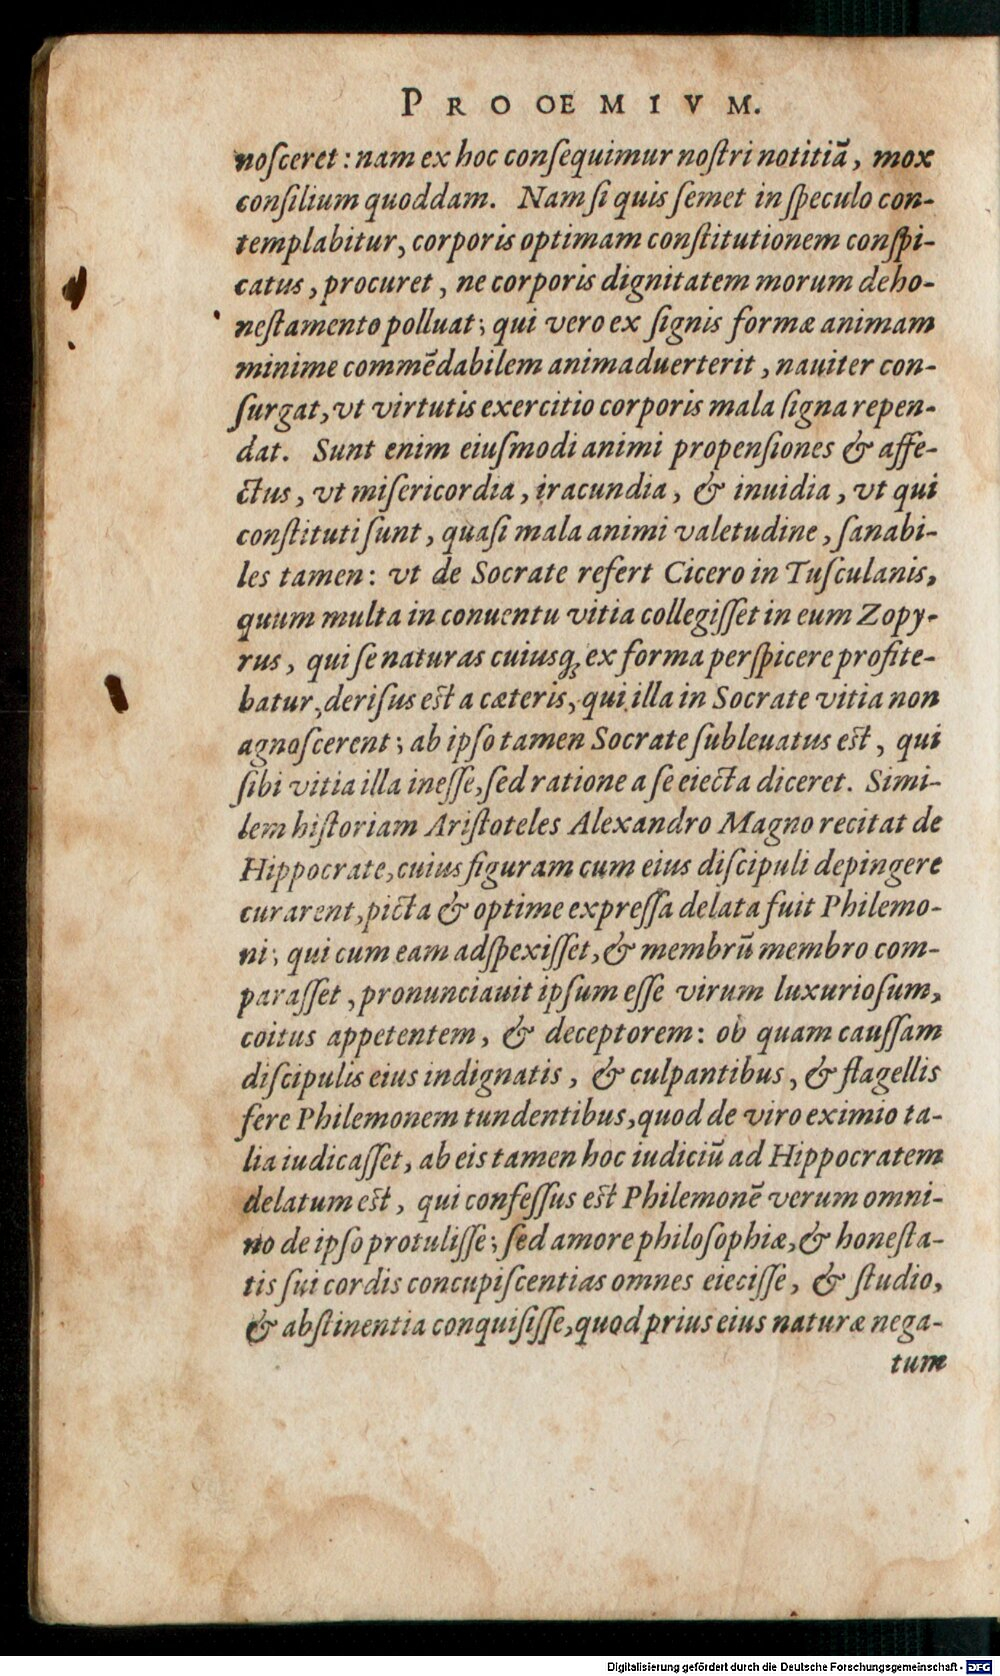 PROOEMIVM.
noſceret: nam ex hoc conſequimur noſtri notitiā, mox
conſilium quoddam. Nam ſi quis ſemet in ſpeculo con-
templabitur, corporis optimam conſtitutionem conſpi-
catus, procuret, ne corporis dignitatem morum deho-
neſtamento polluat; qui vero ex ſignis formæ animam
minime commēdabilem animaduerterit, nauiter con-
ſurgat, vt virtutis exercitio corporis mala ſigna repen-
dat. Sunt enim eiuſmodi animi propenſiones & affe-
ctus, vt miſericordia, iracundia, & inuidia, vt qui
conſtituti ſunt, quaſi mala animi valetudine, ſanabi-
les tamen: vt de Socrate refert Cicero in Tuſculanis,
quum multa in conuentu vitia collegiſſet in eum Zopy-
rus, qui ſe naturas cuiusq; ex forma perſpicere profite-
batur, deriſus est a cæteris, qui illa in Socrate vitia non
agnoſcerent; ab ipſo tamen Socrate ſubleuatus est, qui
ſibi vitia illa ineſſe, ſed ratione a ſe eiecta diceret. Simi-
lem hiſtoriam Ariſtoteles Alexandro Magno recitat de
Hippocrate, cuius figuram cum eius diſcipuli depingere
curarent, picta & optime expreſſa delata fuit Philemo-
ni; qui cum eam adſpexiſſet, & membrū membro com-
paraſſet, pronunciauit ipſum eſſe virum luxurioſum,
coitus appetentem, & deceptorem: ob quam cauſſam
diſcipulis eius indignatis, & culpantibus, & flagellis
fere Philemonem tundentibus, quod de viro eximio ta-
lia iudicaſſet, ab eis tamen hoc iudiciū ad Hippocratem
delatum est, qui confeſſus est Philemonē verum omni-
no de ipſo protuliſſe; ſed amore philoſophiæ, & honesta-
tis ſui cordis concupiſcentias omnes eieciſſe, & ſtudio,
& abſtinentia conquiſiſſe, quod prius eius naturæ nega-
tum
Digitalisierung gefördert durch die Deutsche Forschungsgemeinschaft - DFG